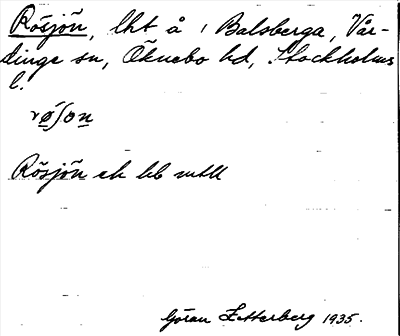 Rösjön, lht å, Balsberga, Vår-
dinge sn, Öknebo hd, Stockholms
l.
røʃon
Rösjön ek bb mtll
Göran Zetterberg 1935.